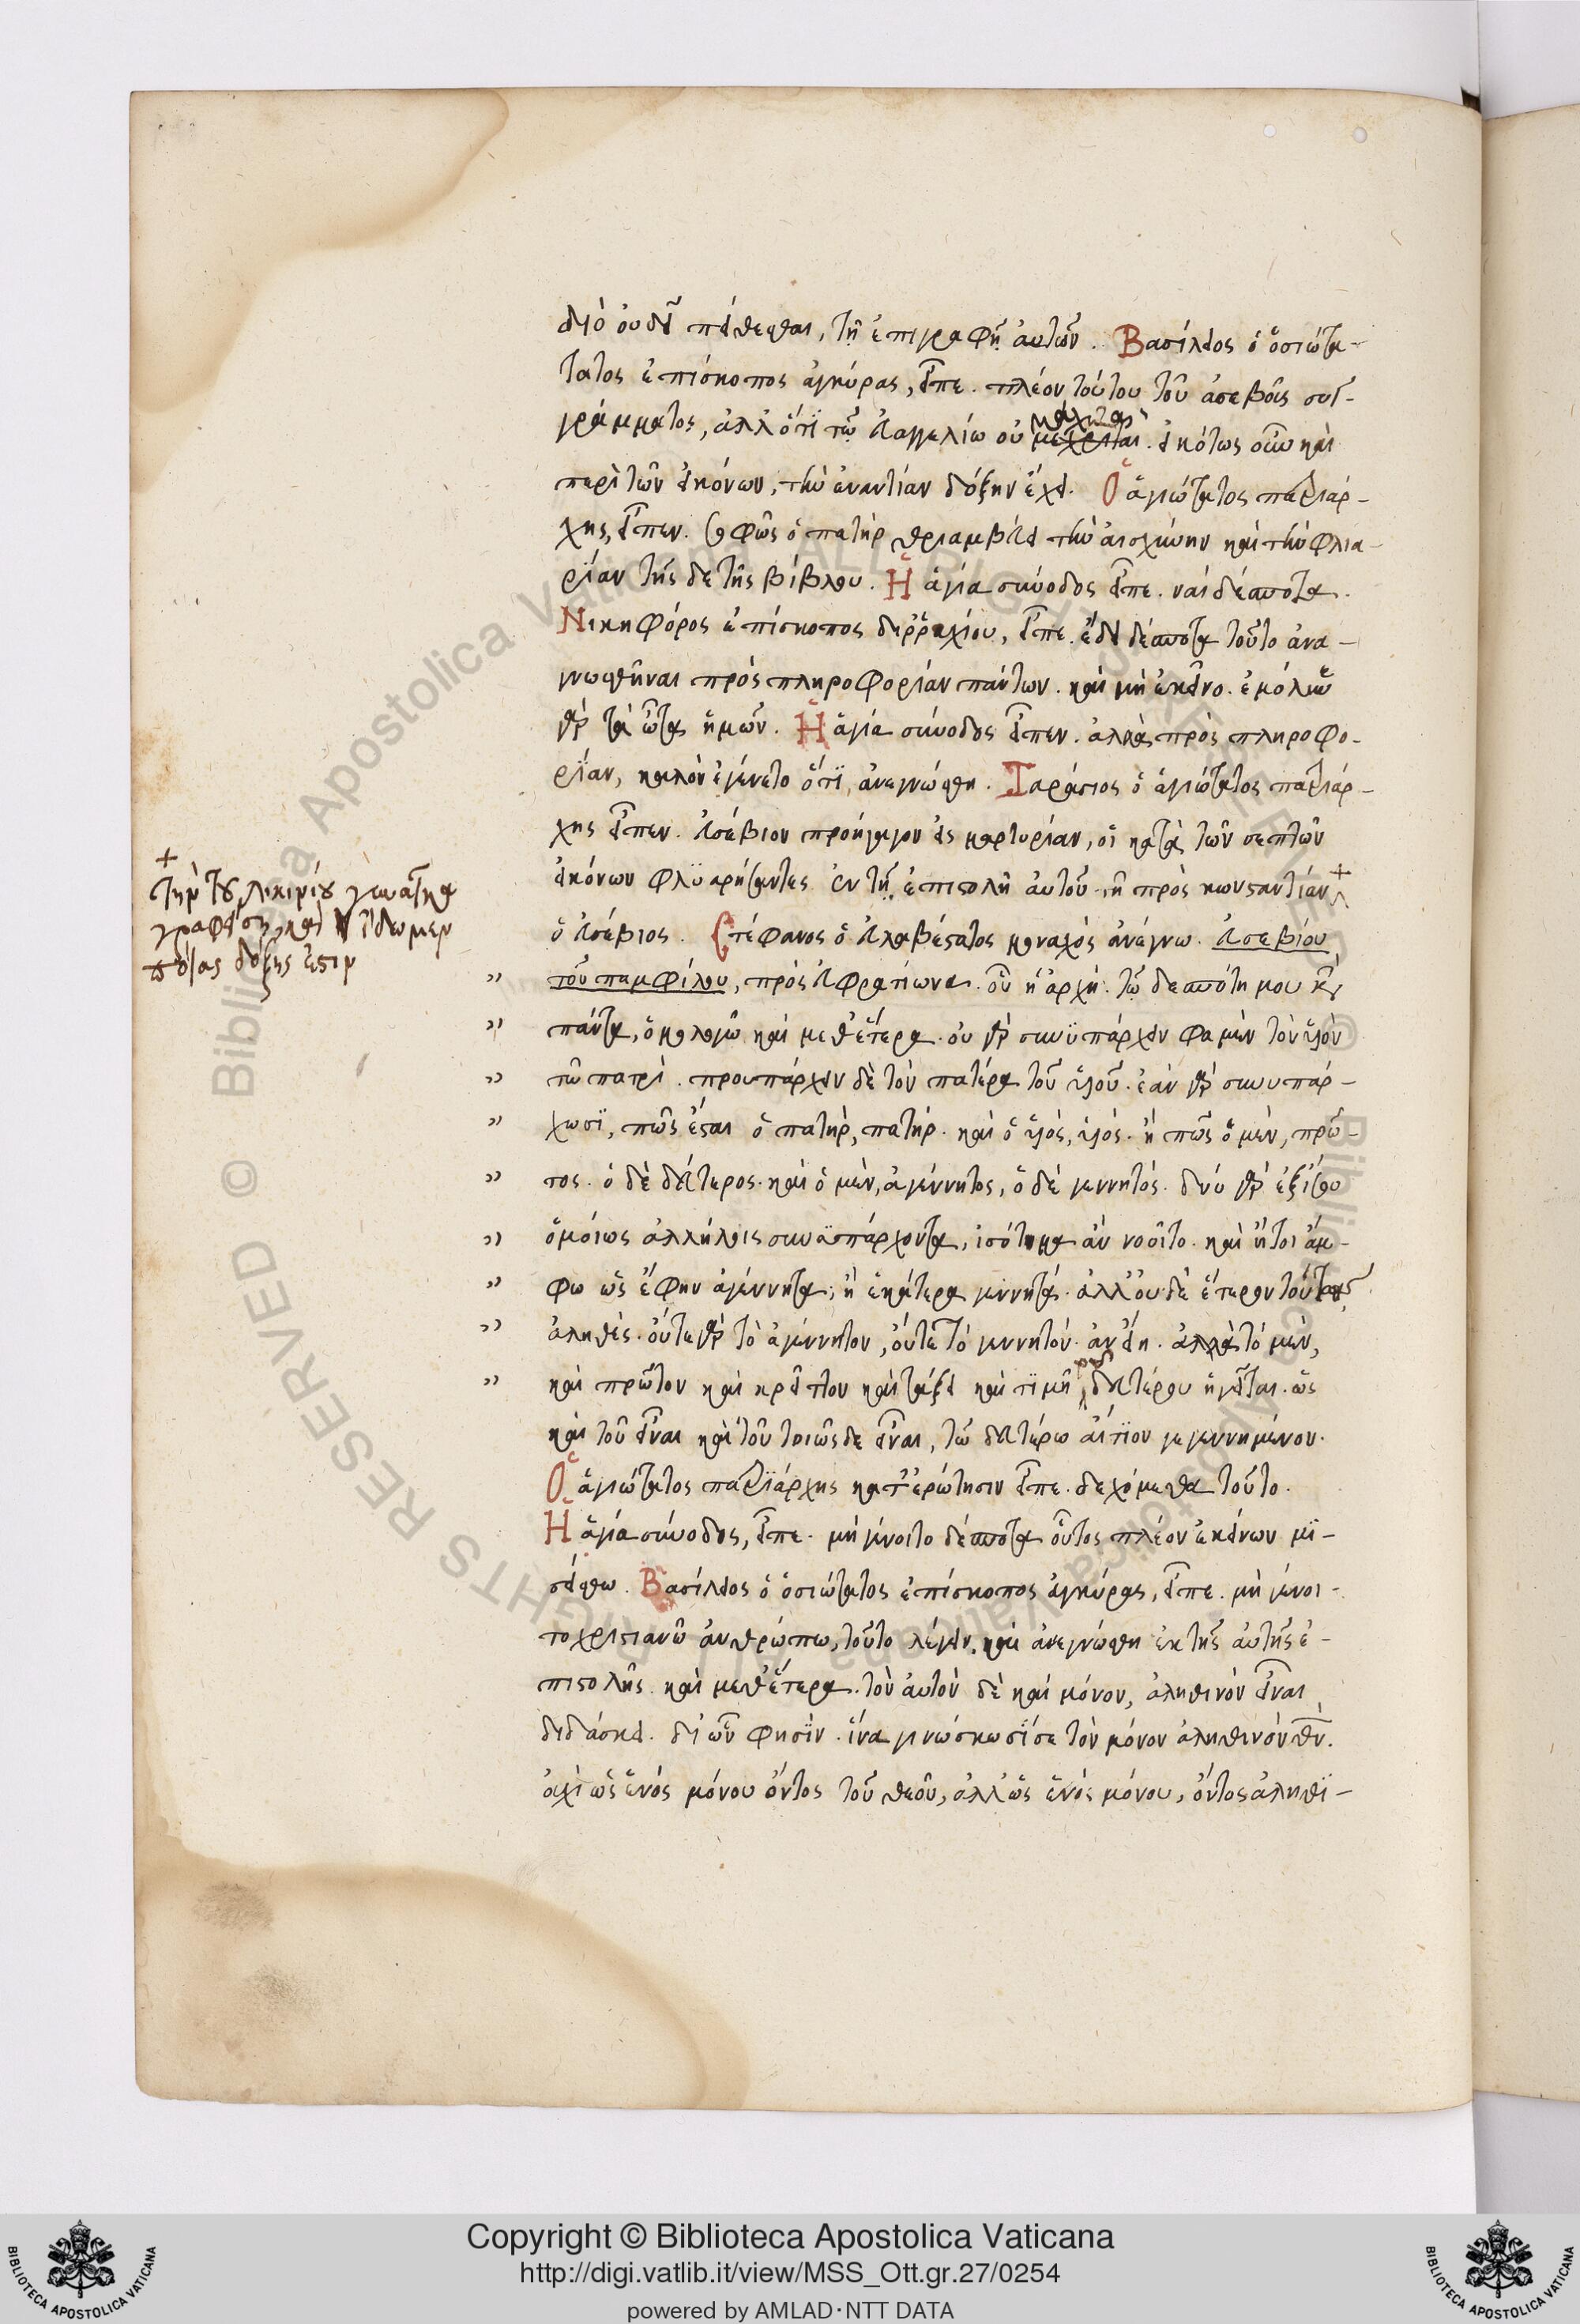 διὸ οὐ δεῖ πείθεσθαι, τῇ ἐπιγραφῇ αὐτῶν. Βασίλειος ὁ ὁσιώτα-
τατος ἐπίσκοπος ἀγκύρας, εἶπε. πλέον τούτου τοῦ ἀσεβοῦς συγ-
γράμματος, ἀλλ' ὅτι τῷ εὐαγγελίω οὐ μάχεται. εἰκότως οὖν καὶ
περὶ τῶν εἰκόνων, τὴν ἐναντίαν δόξην ἔχει. Ὁ ἁγιώτατος πατριάρ-
χης, εἶπεν. σοφῶς ὁ πατὴρ θριαμβεύει τὴν αἰσχύνην καὶ τὴν φλυα-
ρίαν τῆς δε τῆς βίβλου. Ἡ ἁγία σύνοδος εἶπε. ναὶ δέσποτα.
Νικηφόρος ἐπίσκοπος δυρραχίου, εἶπε. ἔδει δέσποτα τοῦτο ἀνα-
γνωσθῆναι πρὸς πληροφορίαν πάντων. καὶ μὴ ἐκεῖνο. ἐμόλυνε
γὰρ τὰ ὦτα ἡμῶν. Ἡ ἁγία σύνοδος εἶπεν. ἀλλὰ πρὸς πληροφο-
ρίαν, καλὸν ἐγένετο ὅτι ἀνεγνώσθη. Ταράσιος ὁ ἁγιώτατος πατριάρ-
χης εἶπεν. εὐσέβιον προήγαγον εἰς μαρτυρίαν, οἱ κατὰ τῶν σεπτῶν
εἰκόνων φλυαρήσαντες ἐν τῇ ἐπιστολῇ αὐτοῦ τῇ πρὸς κωνσταντίαν +
+
τὴν τοῦ λικινίου γυναῖκα
γραφείσῃ καὶ ἴδωμεν
ποίας δόξης ἐστιν
ὁ εὐσέβιος. Στέφανος ὁ εὐλαβέστατος μοναχὸς ἀνέγνω. εὐσεβίου
" τοῦ παμφίλου, πρὸς εὐφρατίωνα. οὗ ἡ ἀρχή. τῷ δεσπότη μου κατὰ
" πάντα, ὁμολογῶ καὶ μεθ' ἕτερα. οὐ γὰρ συνυπάρχειν φαμὲν τὸν υἱὸν
" τῶ πατρί. προυπάρχειν δὲ τὸν πατέρα τοῦ υἱοῦ. ἐὰν γὰρ συνυπάρ-
" χωσι, πῶς ἔσται ὁ πατήρ, πατήρ. καὶ ὁ υἱός, υἱός. ἢ πῶς ὁ μὲν, πρῶ-
" τος. ὁ δὲ δεύτερος. καὶ ὁ μὲν, ἀγέννητος, ὁ δὲ γεννητός. δύο γὰρ ἐξίσου
" ὁμοίως ἀλλήλοις συνυπάρχοντα, ἰσότιμα ἂν νοοῖτο. καὶ ἤτοι ἄμ-
" φω ὡς ἔφην ἀγέννητα, ἢ ἑκάτερα γεννητά. ἀλλ' οὐδὲ ἕτερον τούτων
" ἀληθές. οὔτε γὰρ τὸ ἀγέννητον, οὔτε τὸ γεννητόν. ἂν εἴη. ἀλλὰ τὸ μὲν,
" καὶ πρῶτον καὶ κρεῖττον καὶ τάξει καὶ τιμῇ τοῦ δευτέρου ἡγεῖται. ὡς
καὶ τοῦ εἶναι καὶ τοῦ τοιῶσδε εἶναι, τῶ δευτέρω αἴτιον γεγεννημένου.
Ὁ ἁγιώτατος πατριάρχης κατ' ἐρώτησιν εἶπε. δεχόμεθα τοῦτο.
Ἡ ἁγία σύνοδος, εἶπε. μὴ γένοιτο δέσποτα οὗτος πλέον ἐκείνων μι-
σείσθω. Βασίλειος ὁ ὁσιώτατος ἐπίσκοπος ἀγκύρας, εἶπε. μὴ γένοι-
το χριστιανῶ ἀνθρώπω, τοῦτο λέγειν. καὶ ἀνεγνώσθη ἐκ τῆς αὐτῆς ἐ-
πιστολῆς. καὶ μεθ' ἕτερα. τὸν αὐτὸν δὲ καὶ μόνον, ἀληθινὸν εἶναι
διδάσκει. δι' ὧν φησίν. ἵνα γινώσκωσί σε τὸν μόνον ἀληθινὸν θν.
οὐχὶ ὡς ἑνὸς μόνου ὄντος τοῦ θεοῦ, ἀλλ' ὡς ἑνὸς μόνου, ὄντος ἀληθι-
BIBLIOTECA APOSTOLICA VATICANA
Copyright © Biblioteca Apostolica Vaticana
http://digi.vatlib.it/view/MSS_Ott.gr.27/0254
powered by AMLAD·NTT DATA
BIBLIOTECA APOSTOLICA VATICANA